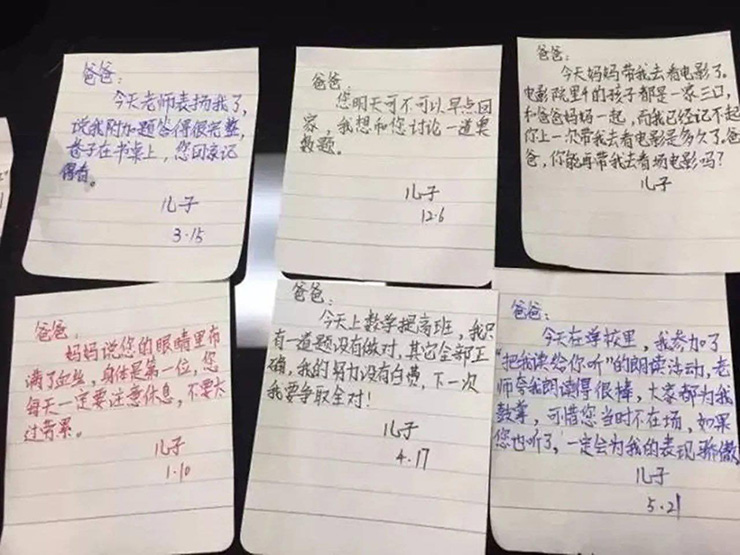 爸爸:
今天老师表扬我了,
说我附加题答得很完整,
卷子在书桌上,您回家记
得看。
儿子
3.15
爸爸:
您明天可不可以早点回
家,我想和您讨论一道奥
数题。
儿子
12.6
爸爸:
今天妈妈带我去看电影了。
电影院里的孩子都是一家三口,
和爸爸妈妈一起,而我已经记不起
你上一次带我去看电影是多久了。爸
爸,你能再带我去看场电影吗?
儿子
爸爸:
妈妈说您的眼睛里布
满了血丝,身体是第一位,您
每天一定要注意休息,不要太
过劳累。
儿子
1.10
爸爸:
今天上数学提高班,我只
有一道题没有做对,其它全部正
确,我的努力没有白费,下一次
我要争取全对!
儿子
4.17
爸爸:
今天在学校里,我参加了
“把我读给你听”的朗读活动,老
师夸我朗读得很棒,大家都为我
鼓掌,可惜您当时不在场,如果
您也听了,一定会为我的表现骄傲
儿子
5.21